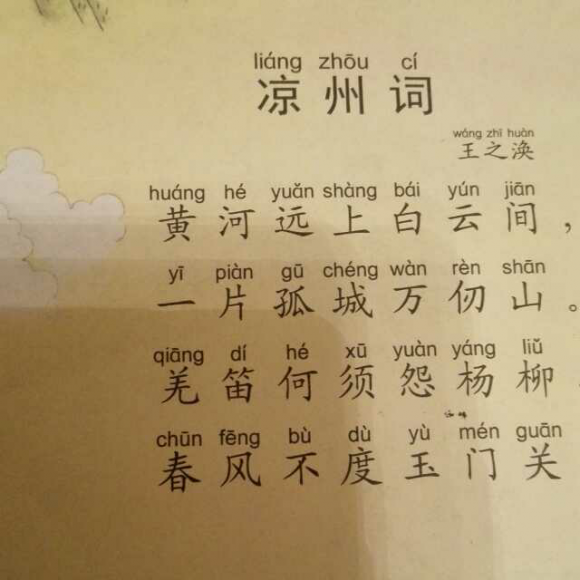 liáng zhōu cí
凉州词
wáng zhī huàn
王之涣
huáng hé yuǎn shàng bái yún jiān
黄河远上白云间，
yī piàn gū chéng wàn rèn shān
一片孤城万仞山。
qiāng dí hé xū yuàn yáng liǔ
羌笛何须怨杨柳
chūn fēng bù dù yù mén guān
春风不度玉门关